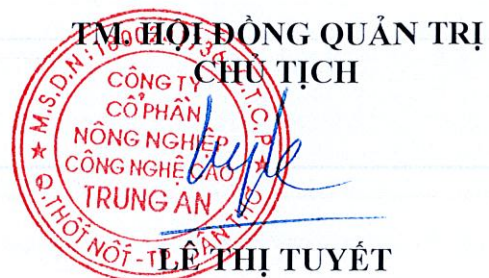 TM. HỘI ĐỒNG QUẢN TRỊ
CHỦ TỊCH
CÔNG TY
CỔ PHẦN
NÔNG NGHIỆP
CÔNG NGHỆ CAO
TRUNG AN
Q.THỐT NỐT - TP. CẦN THƠ
LÊ THỊ TUYẾT